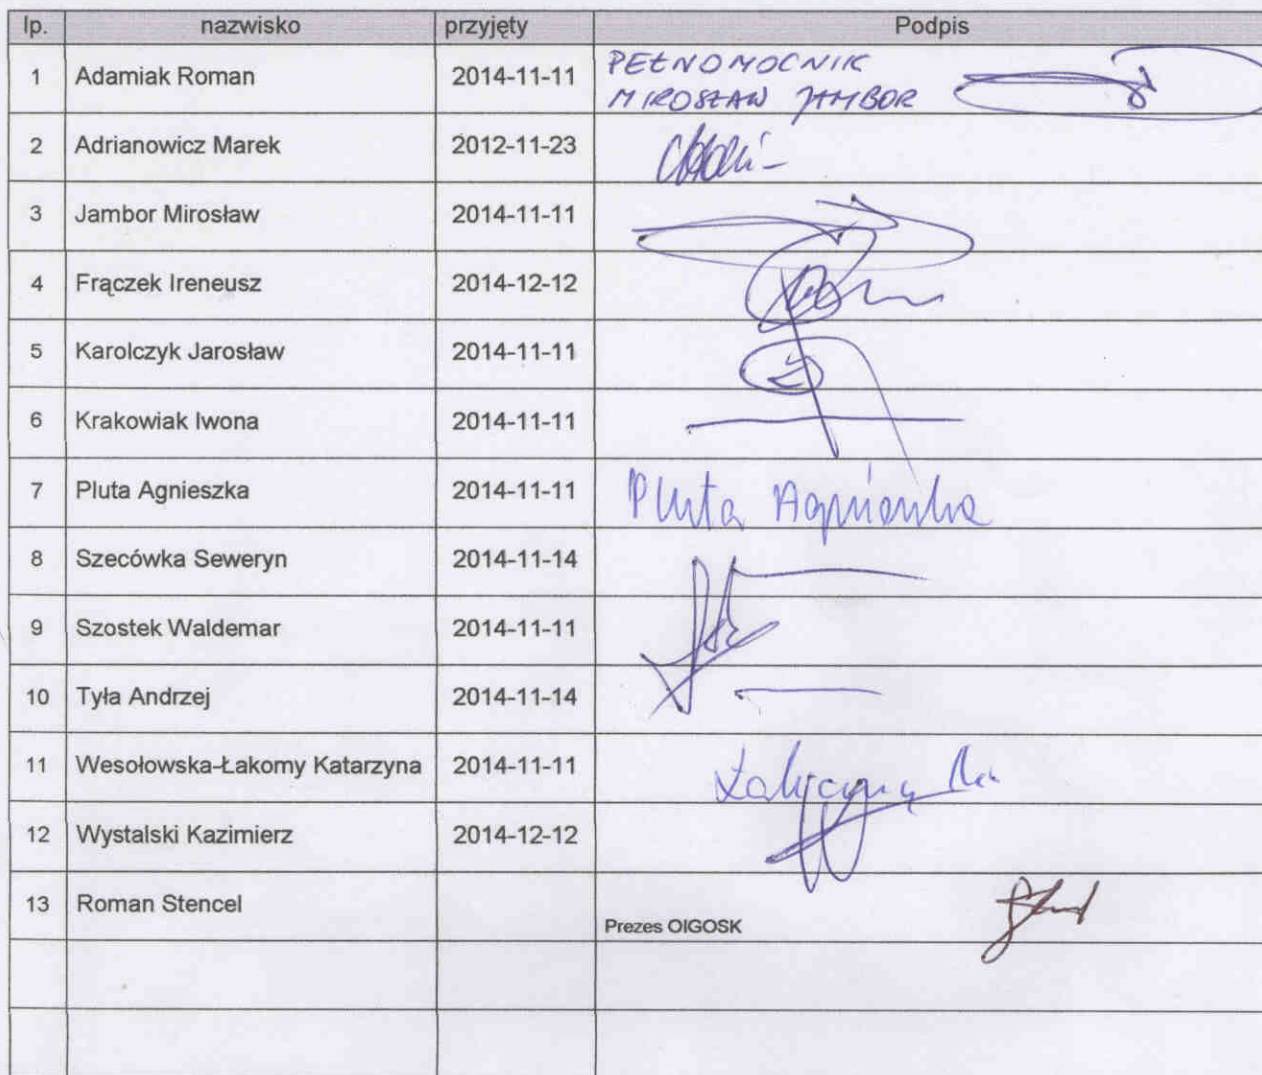 lp. nazwisko przyjęty Podpis
1 Adamiak Roman 2014-11-11 PEŁNOMOCNIK
MIROSŁAW JAMBOR
2 Adrianowicz Marek 2012-11-23
3 Jambor Mirosław 2014-11-11
4 Frączek Ireneusz 2014-12-12
5 Karolczyk Jarosław 2014-11-11
6 Krakowiak Iwona 2014-11-11
7 Pluta Agnieszka 2014-11-11 Pluta Agnieszka
8 Szecówka Seweryn 2014-11-14
9 Szostek Waldemar 2014-11-11
10 Tyła Andrzej 2014-11-14
11 Wesołowska-Łakomy Katarzyna 2014-11-11
12 Wystalski Kazimierz 2014-12-12
13 Roman Stencel
Prezes OIGOSK